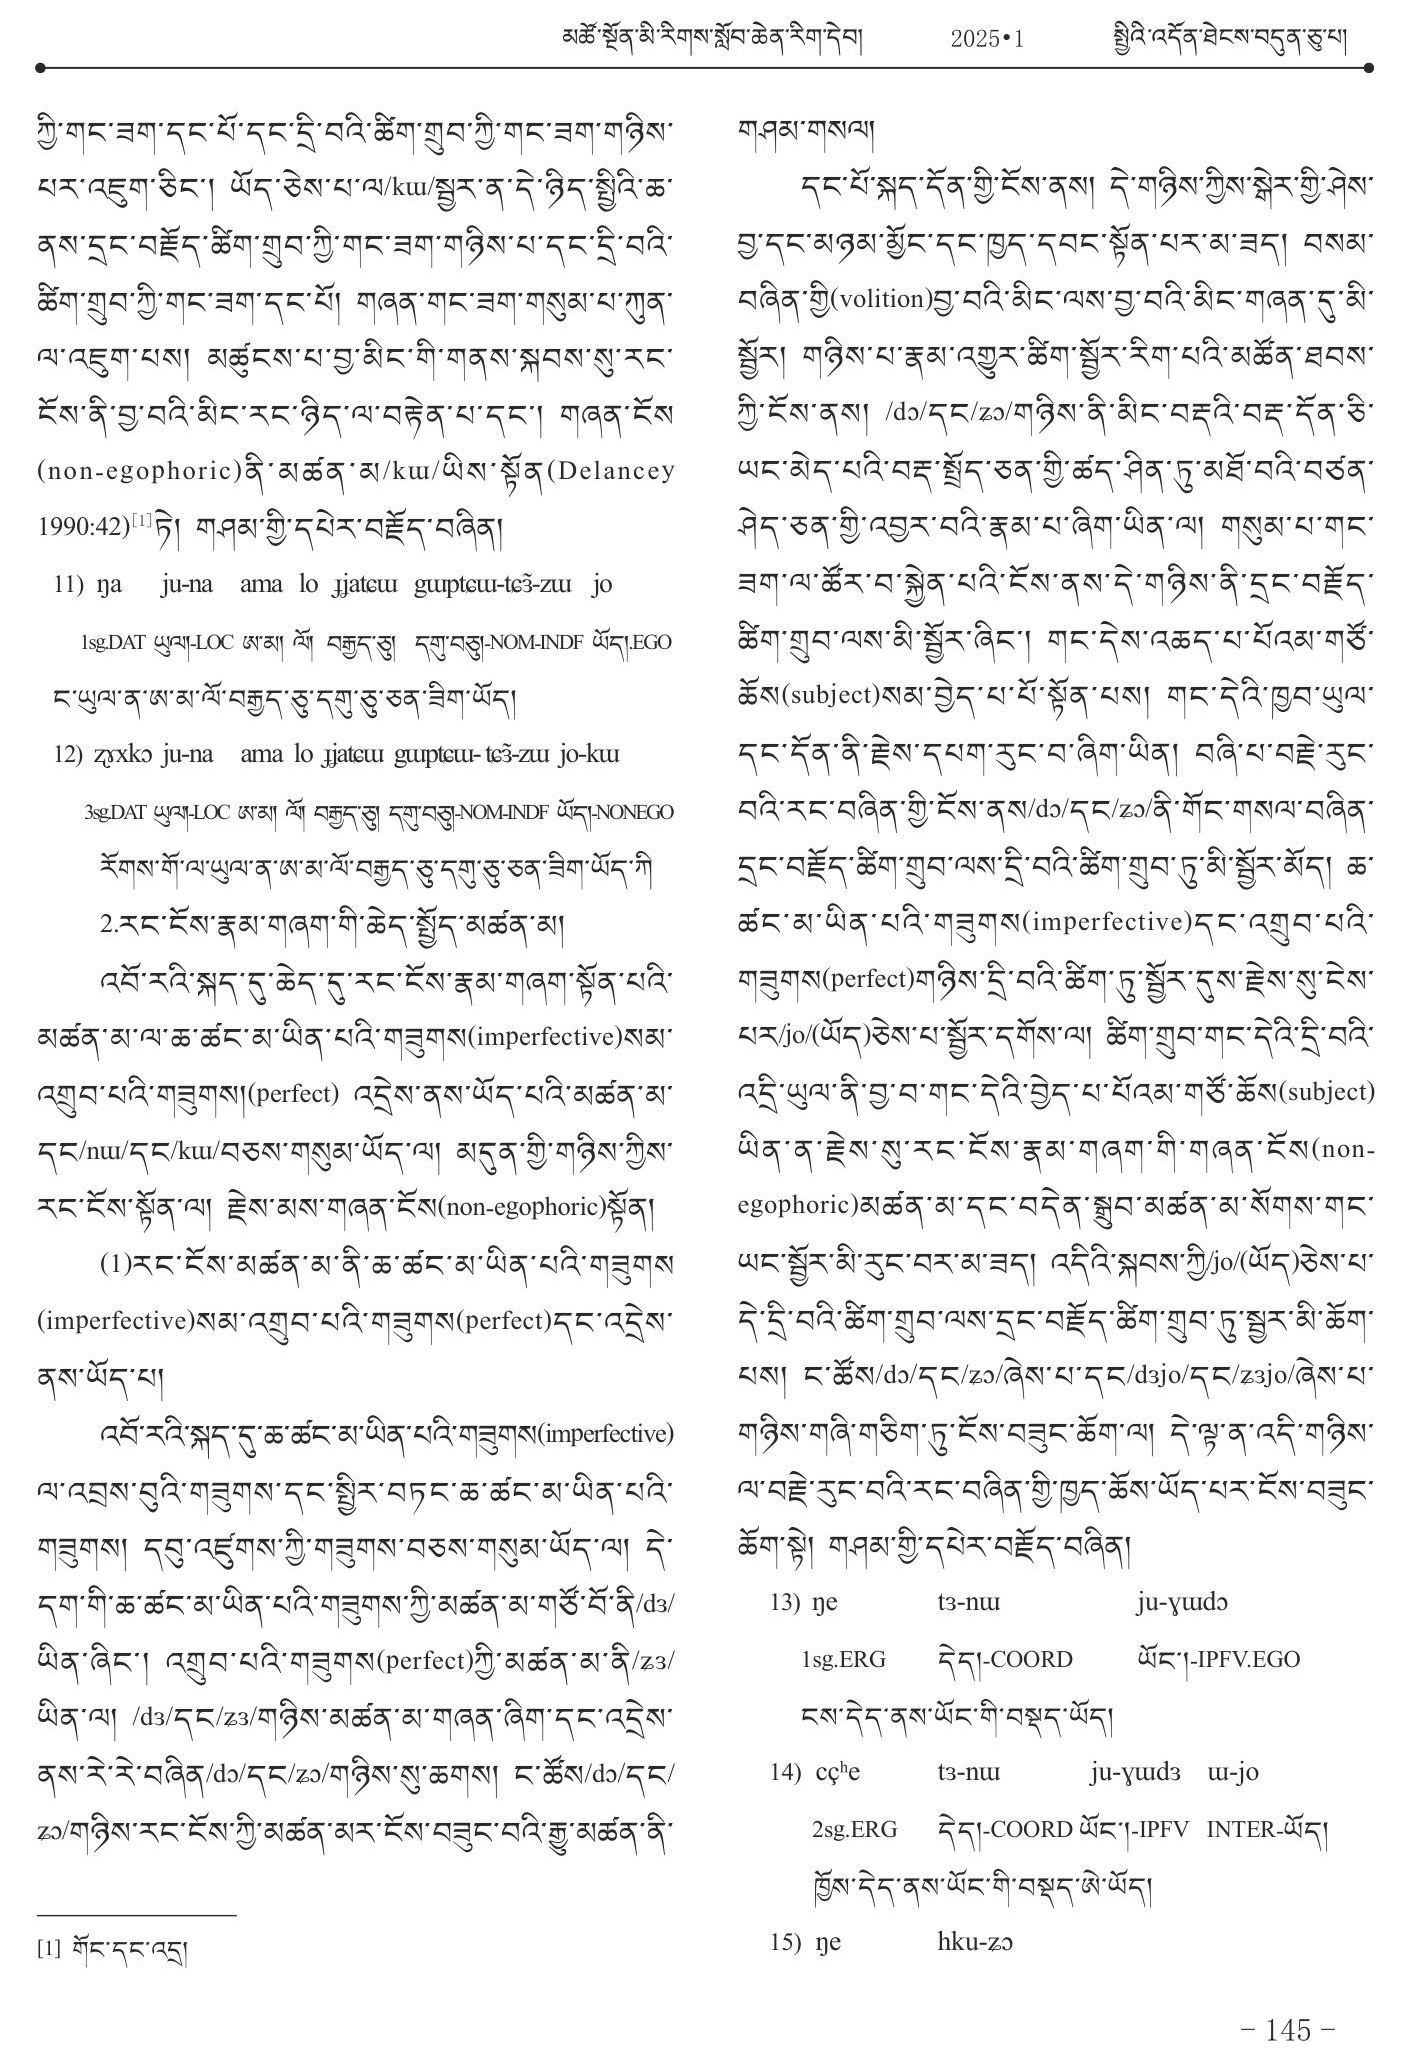 མཚོ་སྔོན་མི་རིགས་སློབ་ཆེན་རིག་དེབ། 2025•1 སྤྱིའི་འདོན་ཐེངས་བདུན་ཅུ་པ།
ཀྱི་གང་ཟག་དང་པོ་དང་དྲི་བའི་ཚིག་གྲུབ་ཀྱི་གང་ཟག་གཉིས་
པར་འཇུག་ཅིང་། ཡོད་ཅེས་པ་ལ/kɯ/སྦྱར་ན་དེ་ཉིད་སྤྱིའི་ཆ་
ནས་དྲང་བརྗོད་ཚིག་གྲུབ་ཀྱི་གང་ཟག་གཉིས་པ་དང་དྲི་བའི་
ཚིག་གྲུབ་ཀྱི་གང་ཟག་དང་པོ། གཞན་གང་ཟག་གསུམ་པ་ཀུན་
ལ་འཇུག་པས། མཚུངས་པ་བྱ་མིང་གི་གནས་སྐབས་སུ་རང་
ངོས་ནི་བྱ་བའི་མིང་རང་ཉིད་ལ་བརྟེན་པ་དང་། གཞན་ངོས
(non-egophoric)ནི་མཚན་མ/kɯ/ཡིས་སྟོན(Delancey
1990:42)[1]ཏེ། གཤམ་གྱི་དཔེར་བརྗོད་བཞིན།
11) ŋa ju-na ama lo ɟjatɕɯ gɯptɕɯ-tɕɜ̃-zɯ jo
1sg.DAT ཡུལ།-LOC ཨ་མ། ལོ། བརྒྱད་ཅུ། དགུ་བཅུ།-NOM-INDF ཡོད།.EGO
ང་ཡུལ་ན་ཨ་མ་ལོ་བརྒྱད་ཅུ་དགུ་ཅུ་ཅན་ཟིག་ཡོད།
12) ʐɤxkɔ ju-na ama lo ɟjatɕɯ gɯptɕɯ- tɕɜ̃-zɯ jo-kɯ
3sg.DAT ཡུལ།-LOC ཨ་མ། ལོ། བརྒྱད་ཅུ། དགུ་བཅུ།-NOM-INDF ཡོད།-NONEGO
རོགས་གོ་ལ་ཡུལ་ན་ཨ་མ་ལོ་བརྒྱད་ཅུ་དགུ་ཅུ་ཅན་ཟིག་ཡོད་ཀི
2.རང་ངོས་རྣམ་གཞག་གི་ཆེད་སྤྱོད་མཚན་མ།
འབོ་རའི་སྐད་དུ་ཆེད་དུ་རང་ངོས་རྣམ་གཞག་སྟོན་པའི་
མཚན་མ་ལ་ཆ་ཚང་མ་ཡིན་པའི་གཟུགས(imperfective)སམ་
འགྲུབ་པའི་གཟུགས།(perfect) འདྲེས་ནས་ཡོད་པའི་མཚན་མ་
དང/nɯ/དང/kɯ/བཅས་གསུམ་ཡོད་ལ། མདུན་གྱི་གཉིས་ཀྱིས་
རང་ངོས་སྟོན་ལ། རྗེས་མས་གཞན་ངོས(non-egophoric)སྟོན།
(1)རང་ངོས་མཚན་མ་ནི་ཆ་ཚང་མ་ཡིན་པའི་གཟུགས
(imperfective)སམ་འགྲུབ་པའི་གཟུགས(perfect)དང་འདྲེས་
ནས་ཡོད་པ།
འབོ་རའི་སྐད་དུ་ཆ་ཚང་མ་ཡིན་པའི་གཟུགས(imperfective)
ལ་འབྲས་བུའི་གཟུགས་དང་སྤྱིར་བཏང་ཆ་ཚང་མ་ཡིན་པའི་
གཟུགས། དབུ་འཛུགས་ཀྱི་གཟུགས་བཅས་གསུམ་ཡོད་ལ། དེ་
དག་གི་ཆ་ཚང་མ་ཡིན་པའི་གཟུགས་ཀྱི་མཚན་མ་གཙོ་བོ་ནི/dɜ/
ཡིན་ཞིང་། འགྲུབ་པའི་གཟུགས(perfect)ཀྱི་མཚན་མ་ནི/ʑɜ/
ཡིན་ལ། /dɜ/དང/ʑɜ/གཉིས་མཚན་མ་གཞན་ཞིག་དང་འདྲེས་
ནས་རེ་རེ་བཞིན/dɔ/དང/ʑɔ/གཉིས་སུ་ཆགས། ང་ཚོས/dɔ/དང/
ʑɔ/གཉིས་རང་ངོས་ཀྱི་མཚན་མར་ངོས་བཟུང་བའི་རྒྱུ་མཚན་ནི་
[1] གོང་དང་འདྲ།
གཤམ་གསལ།
དང་པོ་སྐད་དོན་གྱི་ངོས་ནས། དེ་གཉིས་ཀྱིས་སྒེར་གྱི་ཤེས་
བྱ་དང་མཉམ་མྱོང་དང་ཁྱད་དབང་སྟོན་པར་མ་ཟད། བསམ་
བཞིན་གྱི(volition)བྱ་བའི་མིང་ལས་བྱ་བའི་མིང་གཞན་དུ་མི་
སྦྱོར། གཉིས་པ་རྣམ་འགྱུར་ཚིག་སྦྱོར་རིག་པའི་མཚོན་ཐབས་
ཀྱི་ངོས་ནས། /dɔ/དང/ʑɔ/གཉིས་ནི་མིང་བརྡའི་བརྡ་དོན་ཅི་
ཡང་མེད་པའི་བརྡ་སྤྲོད་ཅན་གྱི་ཚད་ཤིན་ཏུ་མཐོ་བའི་བཙན་
ཤེད་ཅན་གྱི་འབྱར་བའི་རྣམ་པ་ཞིག་ཡིན་ལ། གསུམ་པ་གང་
ཟག་ལ་ཚོར་བ་སྐྱེན་པའི་ངོས་ནས་དེ་གཉིས་ནི་དྲང་བརྗོད་
ཚིག་གྲུབ་ལས་མི་སྦྱོར་ཞིང་། གང་དེས་འཆད་པ་པོའམ་གཙོ་
ཆོས(subject)སམ་བྱེད་པ་པོ་སྟོན་པས། གང་དེའི་ཁྱབ་ཡུལ་
དང་དོན་ནི་རྗེས་དཔག་རུང་བ་ཞིག་ཡིན། བཞི་པ་བརྗེ་རུང་
བའི་རང་བཞིན་གྱི་ངོས་ནས/dɔ/དང/ʑɔ/ནི་གོང་གསལ་བཞིན་
དྲང་བརྗོད་ཚིག་གྲུབ་ལས་དྲི་བའི་ཚིག་གྲུབ་ཏུ་མི་སྦྱོར་མོད། ཆ་
ཚང་མ་ཡིན་པའི་གཟུགས(imperfective)དང་འགྲུབ་པའི་
གཟུགས(perfect)གཉིས་དྲི་བའི་ཚིག་ཏུ་སྦྱོར་དུས་རྗེས་སུ་ངེས་
པར/jo/(ཡོད)ཅེས་པ་སྦྱོར་དགོས་ལ། ཚིག་གྲུབ་གང་དེའི་དྲི་བའི་
འདྲི་ཡུལ་ནི་བྱ་བ་གང་དེའི་བྱེད་པ་པོའམ་གཙོ་ཆོས(subject)
ཡིན་ན་རྗེས་སུ་རང་ངོས་རྣམ་གཞག་གི་གཞན་ངོས(non-
egophoric)མཚན་མ་དང་བདེན་སྒྲུབ་མཚན་མ་སོགས་གང་
ཡང་སྦྱོར་མི་རུང་བར་མ་ཟད། འདིའི་སྐབས་ཀྱི/jo/(ཡོད)ཅེས་པ་
དེ་དྲི་བའི་ཚིག་གྲུབ་ལས་དྲང་བརྗོད་ཚིག་གྲུབ་ཏུ་སྦྱར་མི་ཆོག་
པས། ང་ཚོས/dɔ/དང/ʑɔ/ཞེས་པ་དང/dɜjo/དང/ʑɜjo/ཞེས་པ་
གཉིས་གཞི་གཅིག་ཏུ་ངོས་བཟུང་ཆོག་ལ། དེ་ལྟ་ན་འདི་གཉིས་
ལ་བརྗེ་རུང་བའི་རང་བཞིན་གྱི་ཁྱད་ཆོས་ཡོད་པར་ངོས་བཟུང་
ཆོག་སྟེ། གཤམ་གྱི་དཔེར་བརྗོད་བཞིན།
13) ŋe tɜ-nɯ ju-ɣɯdɔ
1sg.ERG དེད།-COORD ཡོང་།-IPFV.EGO
ངས་དེད་ནས་ཡོང་གི་བསྡད་ཡོད།
14) cçʰe tɜ-nɯ ju-ɣɯdɜ ɯ-jo
2sg.ERG དེད།-COORD ཡོང་།-IPFV INTER-ཡོད།
ཁྱོས་དེད་ནས་ཡོང་གི་བསྡད་ཨེ་ཡོད།
15) ŋe hku-ʑɔ
– 145 –